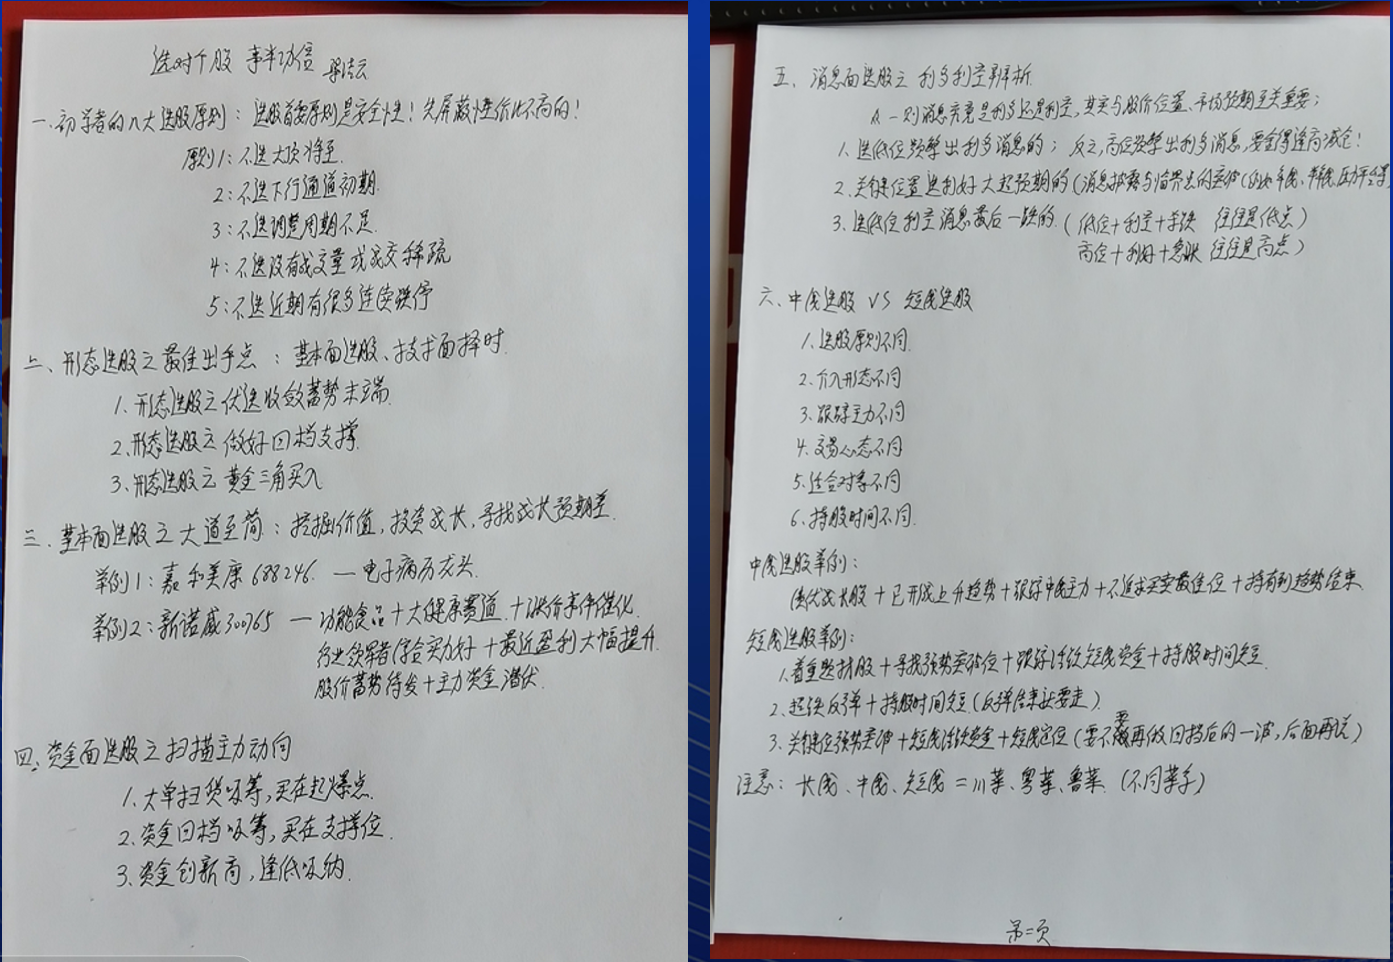 选对个股 事半功倍
一、初学者的八大选股原则：选股首要原则是安全性！先屏蔽性价比不高的！
原则1：不选大顶将至.
2：不选下行通道初期.
3：不选调整周期不足.
4：不选没有成交量或成交稀疏
5：不选近期有很多连续跌停
二、形态选股之最佳出手点：基本面选股、技术面择时.
1.形态选股之优选收敛蓄势末端.
2.形态选股之做好回档支撑.
3.形态选股之黄金三角买入
三、基本面选股之大道至简：挖掘价值，投资成长，寻找成长预期差.
举例1：嘉和美康 688246. — 电子病历龙头.
举例2：新诺威 300765 — 功能食品+大健康赛道+涨价事件催化.
行业领军者(综合实力好+最近盈利大幅提升.
股价蓄势待发+主力资金潜伏.
四、资金面选股之扫描主力动向
1.大单扫货吸筹，买在起爆点.
2.资金回档吸筹，买在支撑位.
3.资金创新高，逢低吸纳.
五、消息面选股之利多利空解析.
一则消息究竟是利多还是利空，其实与股价位置、市场预期至关重要；
1.选低位频繁出利多消息的；反之，高位频繁出利多消息，要舍得逢高减仓！
2.关键位置选利好大超预期的(消息披露与临界点的突破(例如年线、半年线、压力平台等
3.选低位利空消息最后一跌的.(低位+利空+急跌 往往是低点)
高位+利好+急涨 往往是高点)
六、中线选股 VS 短线选股
1.选股原则不同.
2.介入形态不同
3.跟踪主力不同
4.交易心态不同
5.适合对象不同
6.持股时间不同.
中线选股举例：
优优成长股+已形成上升趋势+跟踪中线主力+不追求买卖最佳位+持有到趋势结束.
短线选股举例：
1.着重题材股+寻找强势突破位+跟踪活跃短线资金+持股时间短.
2.超跌反弹+持股时间短.(反弹结束就要走)
3.关键位强势突破+短线活跃资金+短线定位(要不要再做回档后的一波，后面再说)
注意：长线、中线、短线=川菜、粤菜、鲁菜.(不同菜系)
第二页